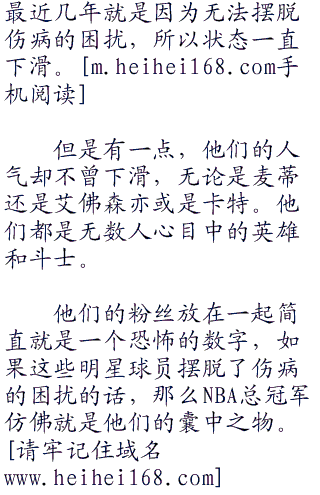 最近几年就是因为无法摆脱
伤病的困扰，所以状态一直
下滑。[m.heihei168.com手
机阅读]
但是有一点，他们的人
气却不曾下滑，无论是麦蒂
还是艾佛森亦或是卡特。他
们都是无数人心目中的英雄
和斗士。
他们的粉丝放在一起简
直就是一个恐怖的数字，如
果这些明星球员摆脱了伤病
的困扰的话，那么NBA总冠军
仿佛就是他们的囊中之物。
[请牢记住域名
www.heihei168.com]